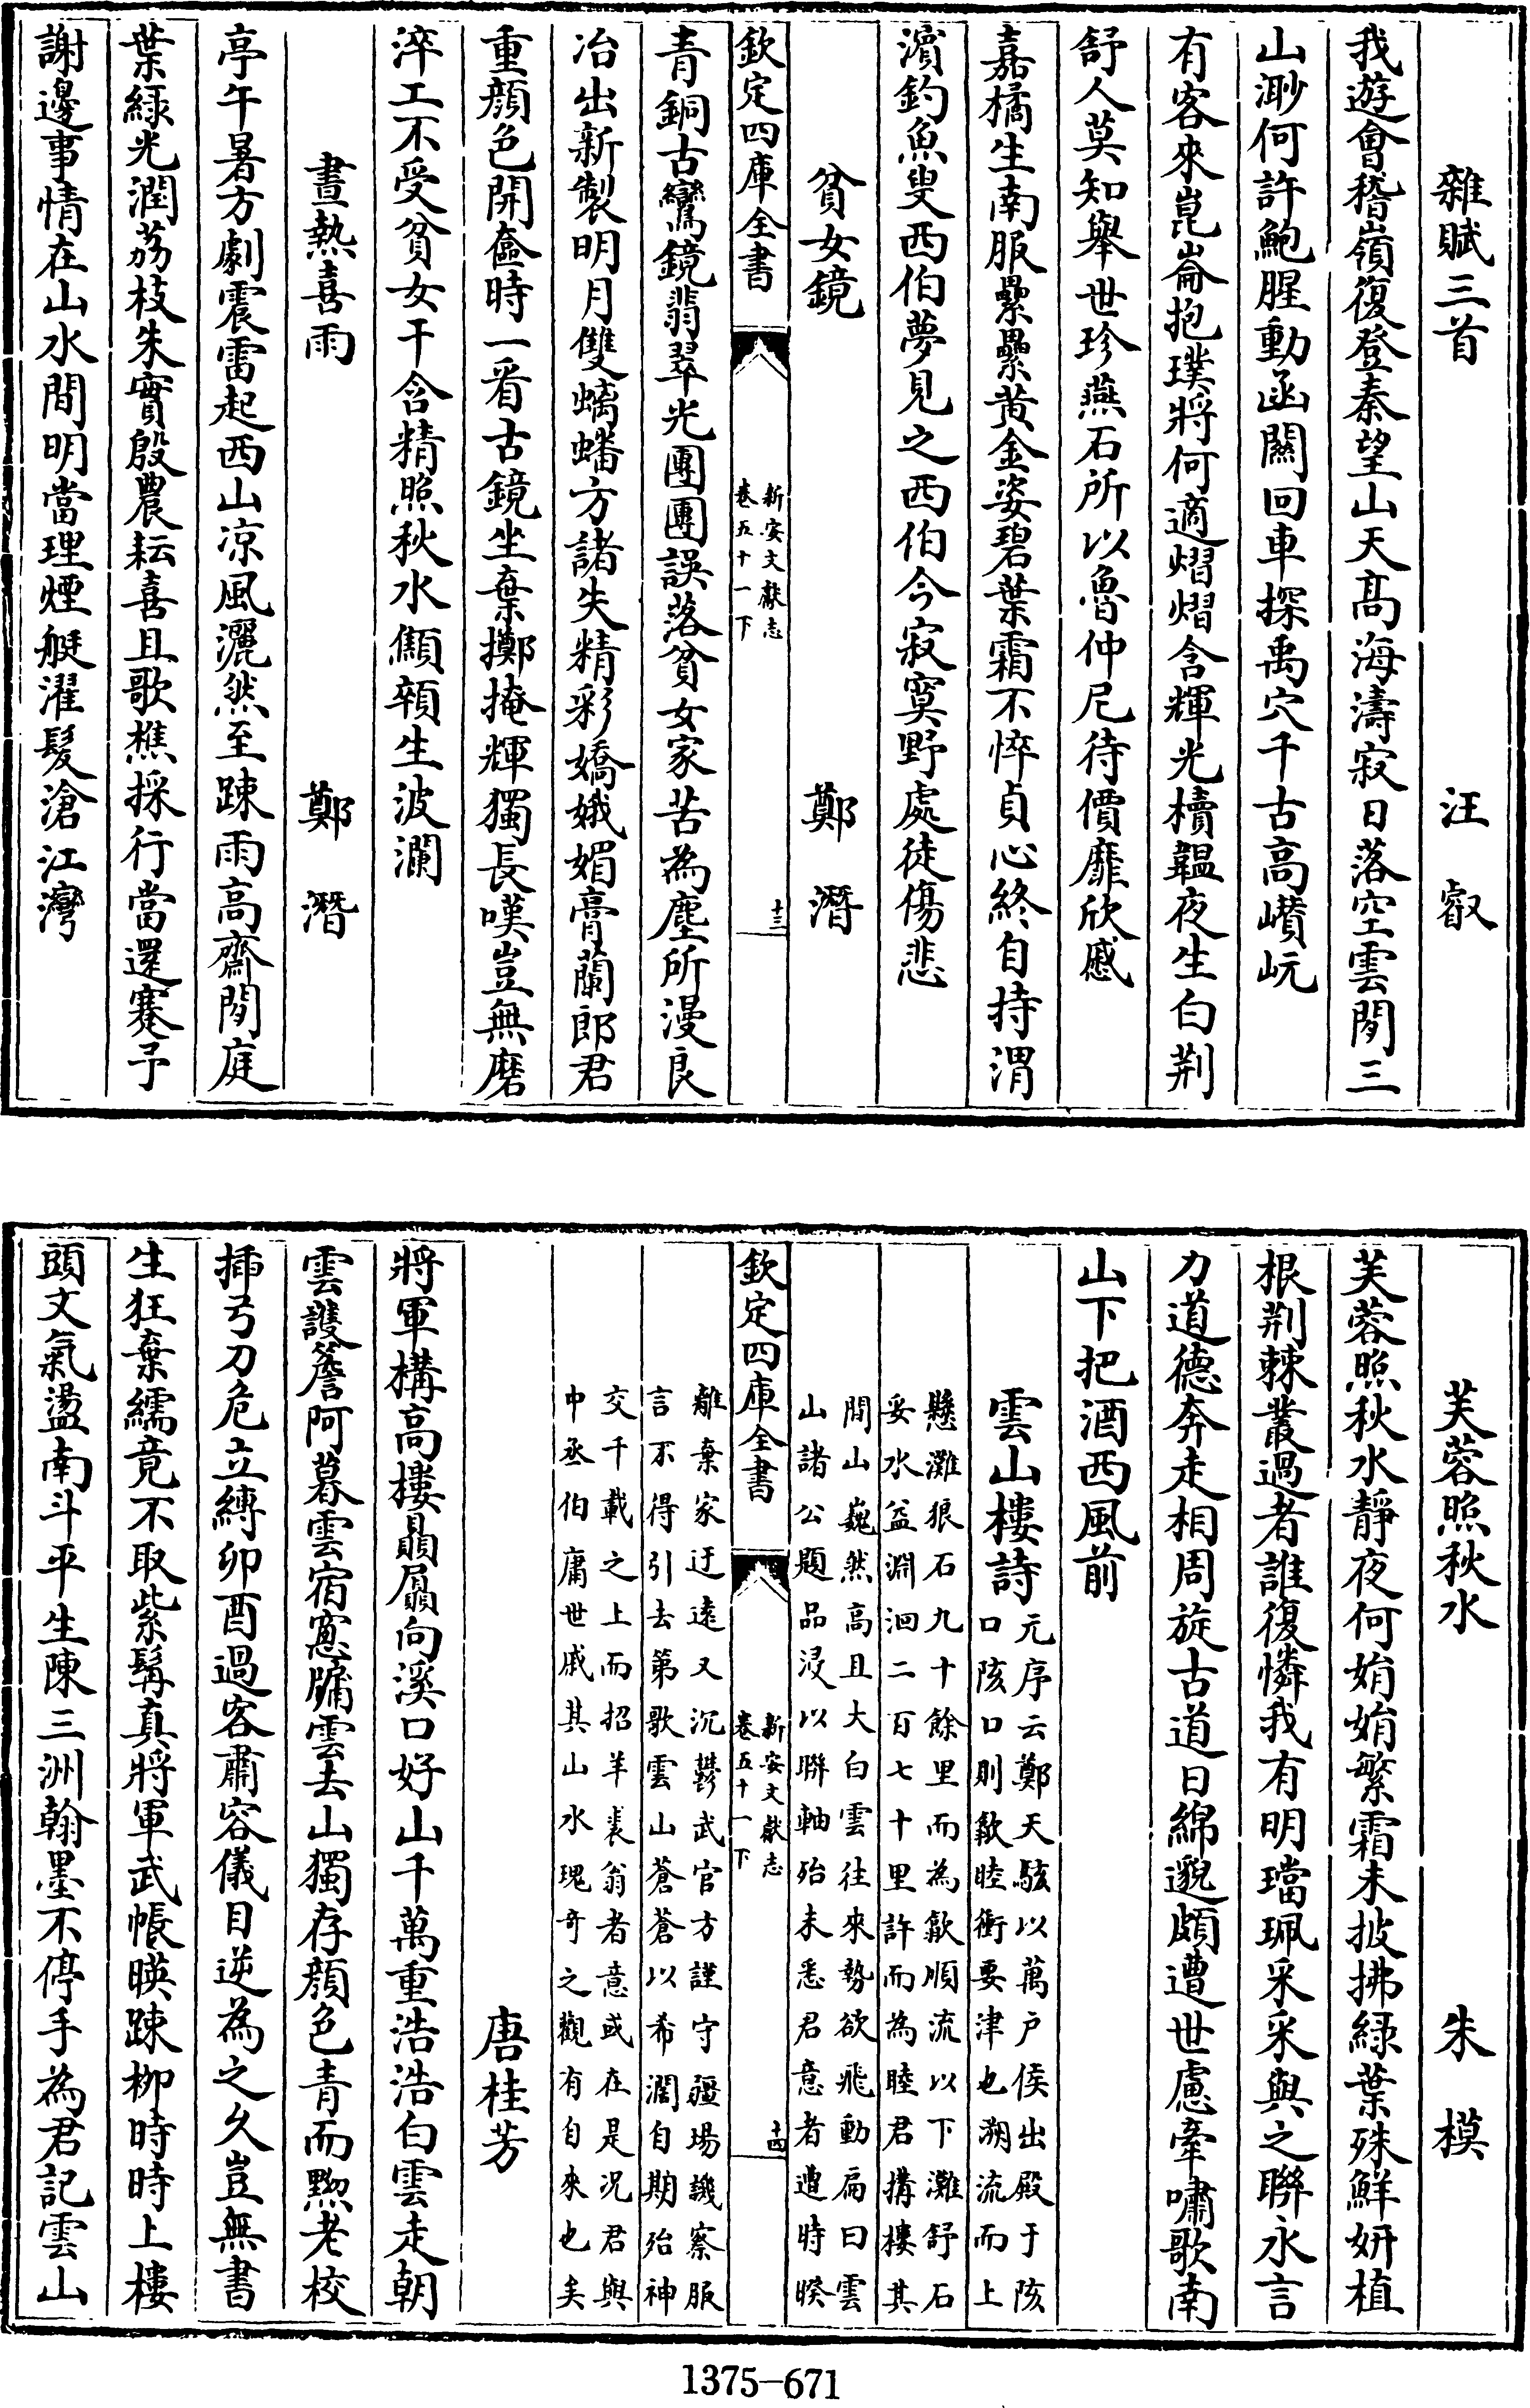 雜賦三首　汪叡
我遊會稽嶺復登秦望山天髙海濤寂日落空雲閒三
山渺何許鮑腥動函關回車探禹穴千古高巑岏
有客來崑崙抱璞將何適熠熠含輝光櫝韞夜生白荆
舒人莫知舉世珍燕石所以魯仲尼待價靡欣慼
嘉橘生南服纍纍黄金姿碧葉霜不悴貞心終自持渭
濵釣魚叟西伯夢見之西伯今寂寞野處徒傷悲
貧女鏡　鄭潛
欽定四庫全書　新安文獻志卷五十一下　十三
青銅古鸞鏡翡翠光團團誤落貧女家苦為塵所漫良
冶出新製明月雙螭蟠方諸失精彩嬌娥媚膏蘭郎君
重顔色開奩時一看古鏡坐棄擲掩輝獨長嘆豈無磨
淬工不受貧女干含精照秋水顑頷生波瀾
晝熱喜雨　鄭潛
亭午暑方劇震雷起西山凉風灑然至疎雨高齋閒庭
葉緑光潤荔枝朱實殷農耘喜且歌樵採行當還蹇予
謝邊事情在山水間明當理煙艇濯髮滄江灣
芙蓉照秋水　朱模
芙蓉照秋水靜夜何娟娟繁霜未披拂緑葉殊鮮妍植
根荆棘叢過者誰復憐我有明璫珮采采與之聯永言
力道德奔走相周旋古道日綿邈頗遭世慮牽嘯歌南
山下把酒西風前
雲山樓詩
元序云鄭天駭以萬户侯出殿于陔
口陔口則歙睦衝要津也溯流而上
懸灘狼石九十餘里而為歙順流以下灘舒石
妥水益淵洄二百七十里許而為睦君搆樓其
間山巍然高且大白雲往來勢欲飛動扁曰雲
山諸公題品浸以聯軸殆未悉君意者遭時睽
欽定四庫全書　新安文獻志卷五十一下　十四
離棄家迂遠又沉鬱武官方謹守疆場譏察服
言不得引去第歌雲山蒼蒼以希濶自期殆神
交千載之上而招羊裘翁者意或在是况君與
中丞伯庸世戚其山水瑰奇之觀有自來也矣
唐桂芳
將軍構高樓贔屭向溪口好山千萬重浩浩白雲走朝
雲護簷阿暮雲宿窻牖雲去山獨存顔色青而黝老校
揷弓刀危立縛卯酉過客肅容儀目逆為之久豈無書
生狂棄繻竟不取紫髯真將軍武帳暎疎栁時時上樓
頭文氣盪南斗平生陳三洲翰墨不停手為君記雲山
1375-671